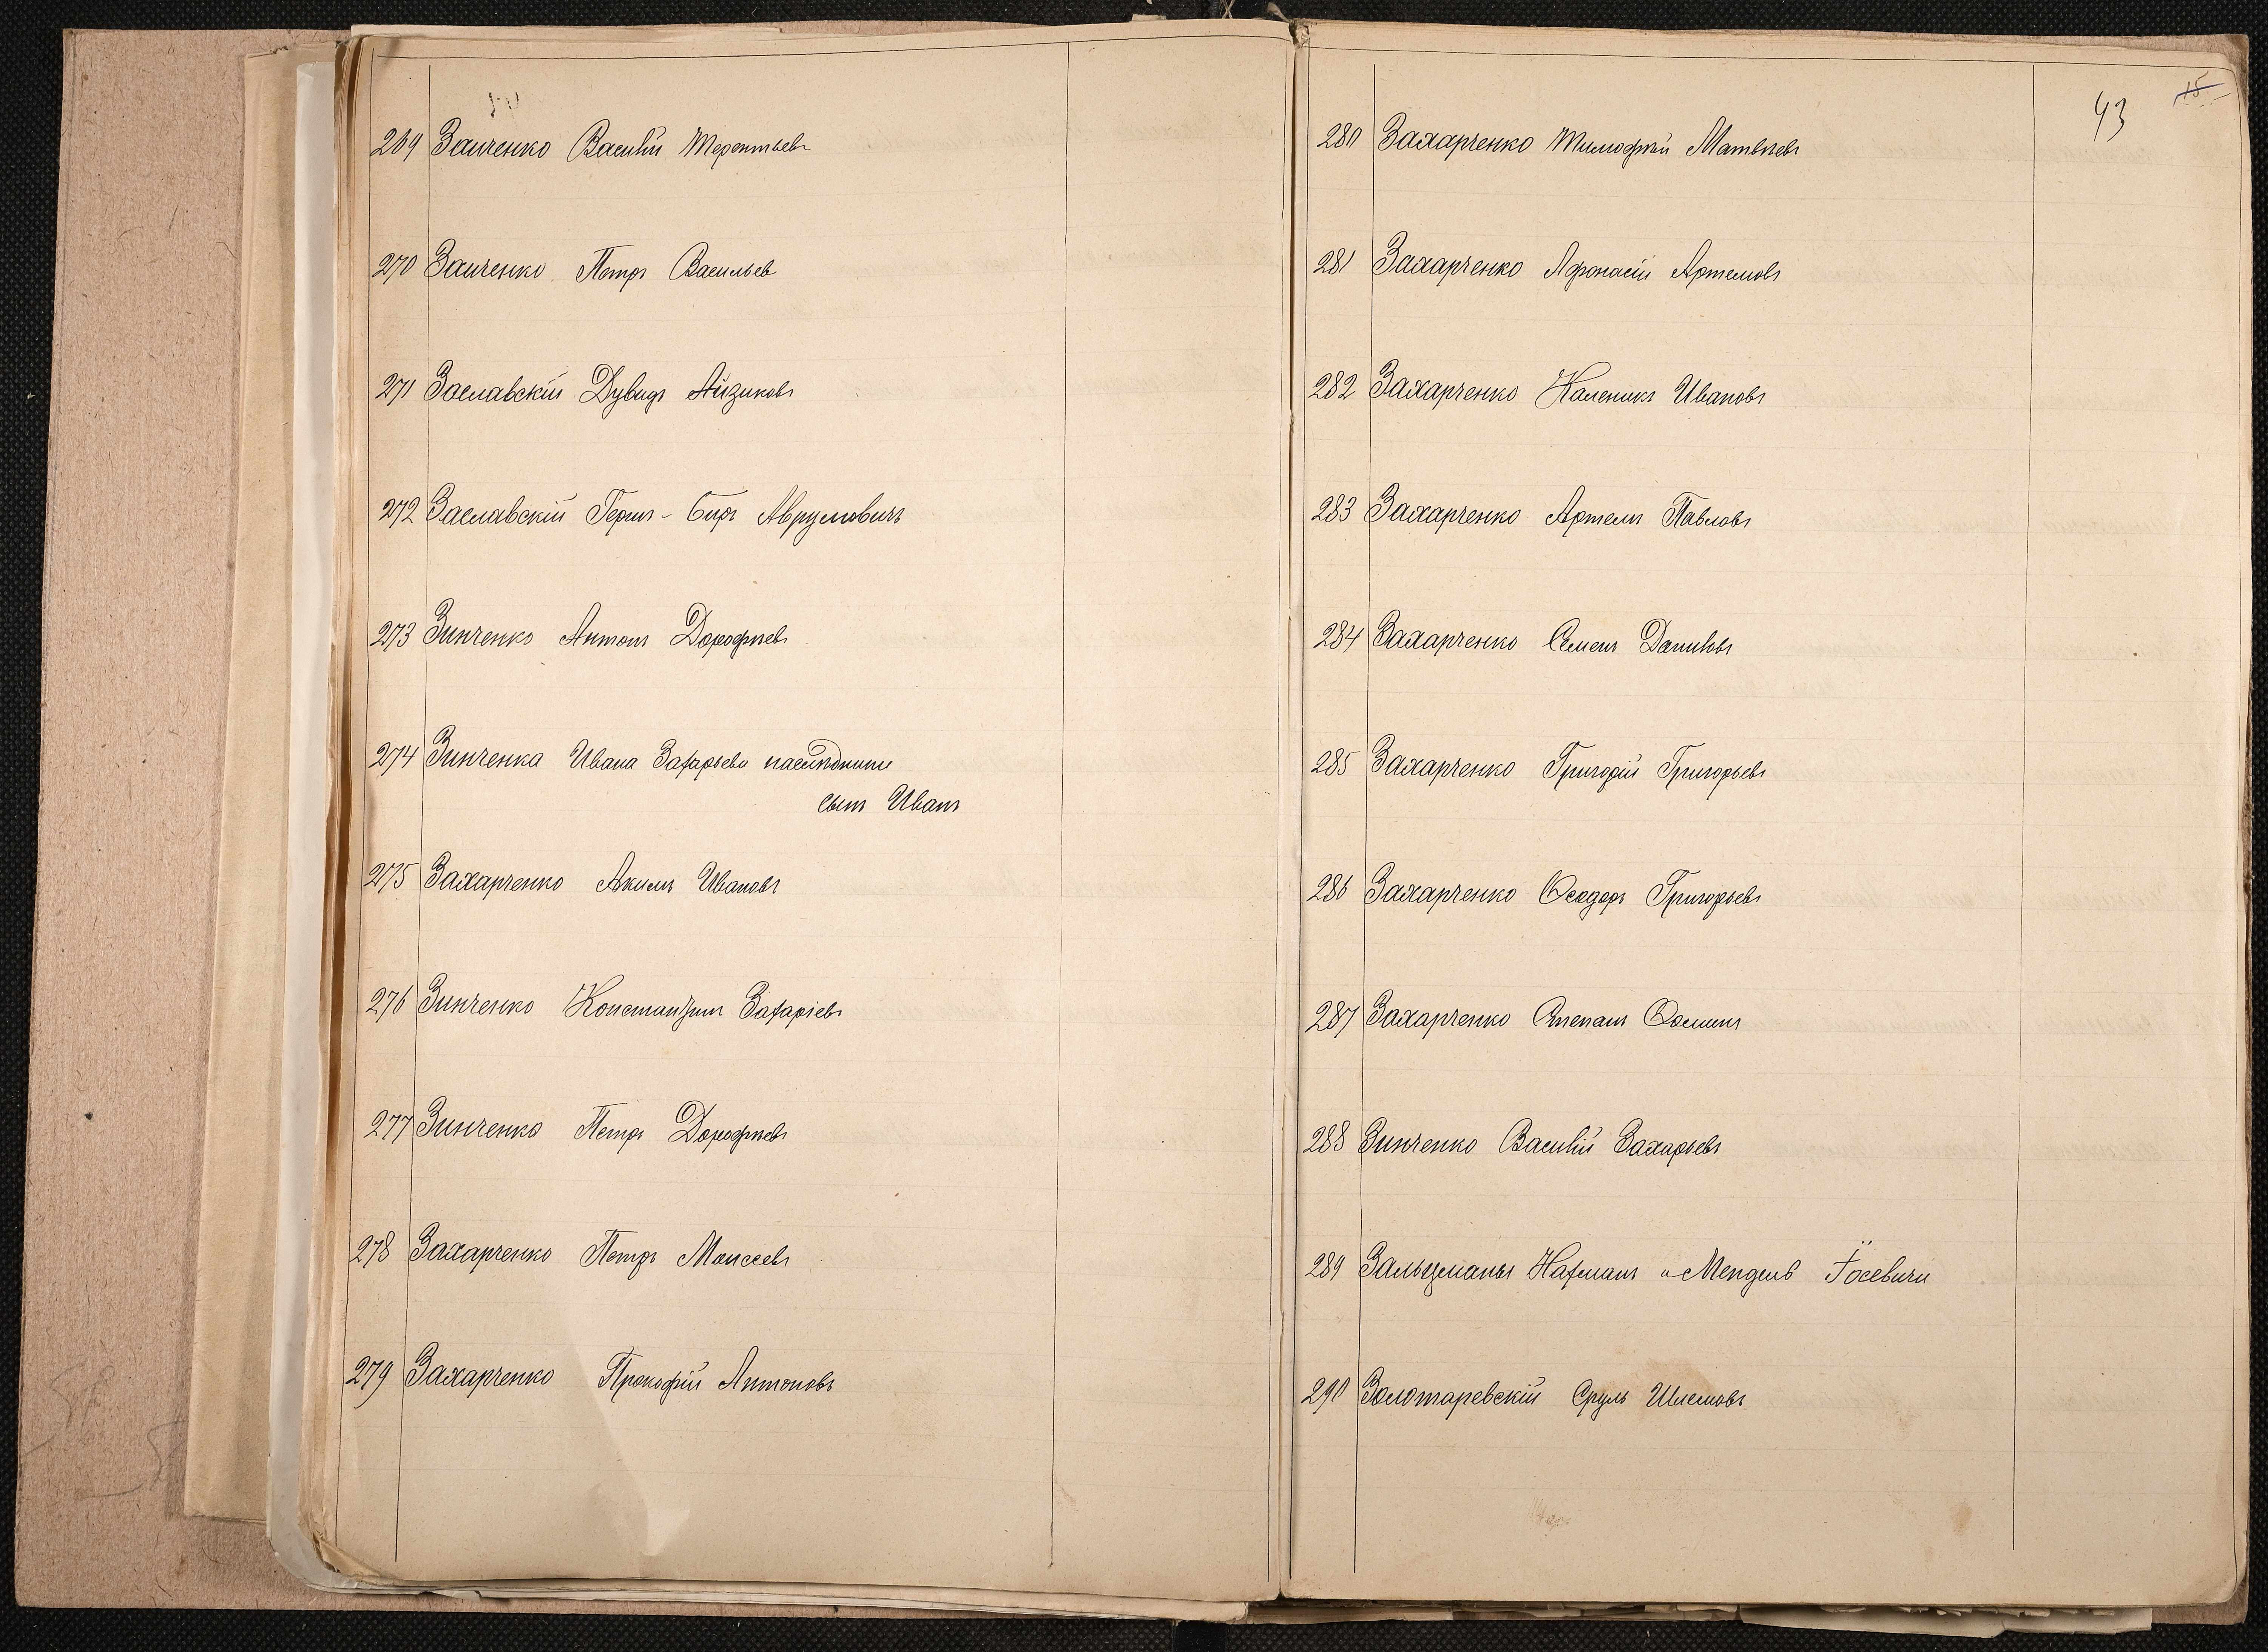 269 Заиченко Василій Терентьевъ
270 Заиченко Петръ Васильев
271 Заславскій Дувидъ Айзиковъ
272 Заславскій Герш - Беръ Аврумовичъ
273 Зинченко Антонъ Дорофѣевъ
274 Зинченка Ивана Захарьева наслѣдники
сынъ Иванъ
275 Захарченко Акимъ Ивановъ
276 Зинченко Константинъ Захаріевъ
277 Зинченко Петръ Дорофѣевъ
278 Захарченко Петръ Моисеевъ
279 Захарченко Прокофій Антоновъ
43 15
280 Захарченко Тимофѣй Матвѣевъ
281 Захарченко Афонасій Артемовъ
282 Захарченко Каленикъ Ивановъ
283 Захарченко Артемъ Павловъ
284 Захарченко Семенъ Даниловъ
285 Захарченко Григорій Григорьевъ
286 Захарченко Ѳеодоръ Григорьевъ
287 Захарченко Степанъ Ѳоминъ
288 Зинченко Василій Захарьевъ
289 Зальцманы Нахманъ и Мендель Іосевичи
290 Золотаревскій Сруль Шлемовъ